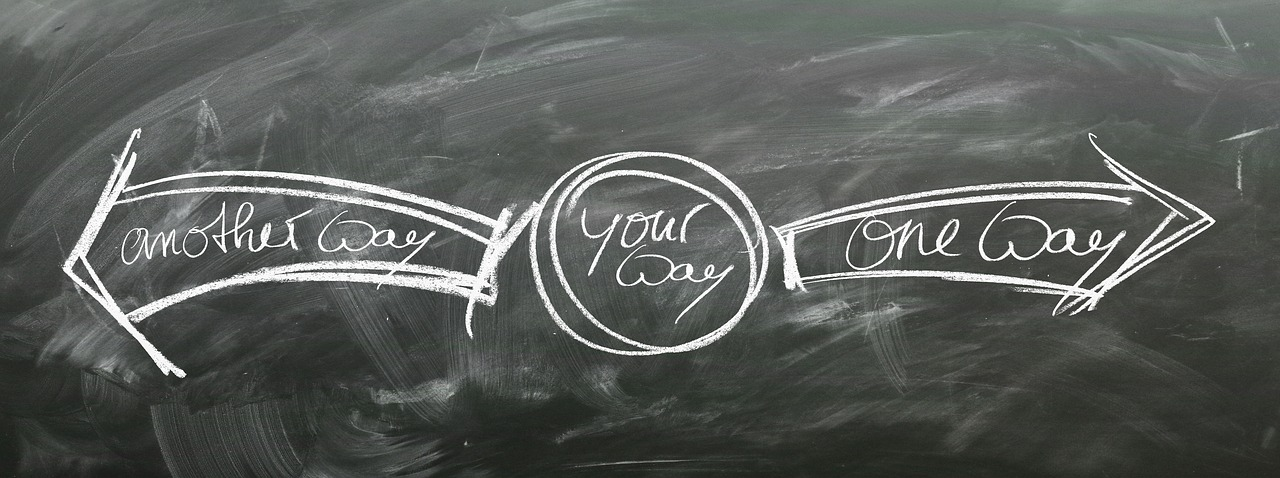 another way
your
way
one way